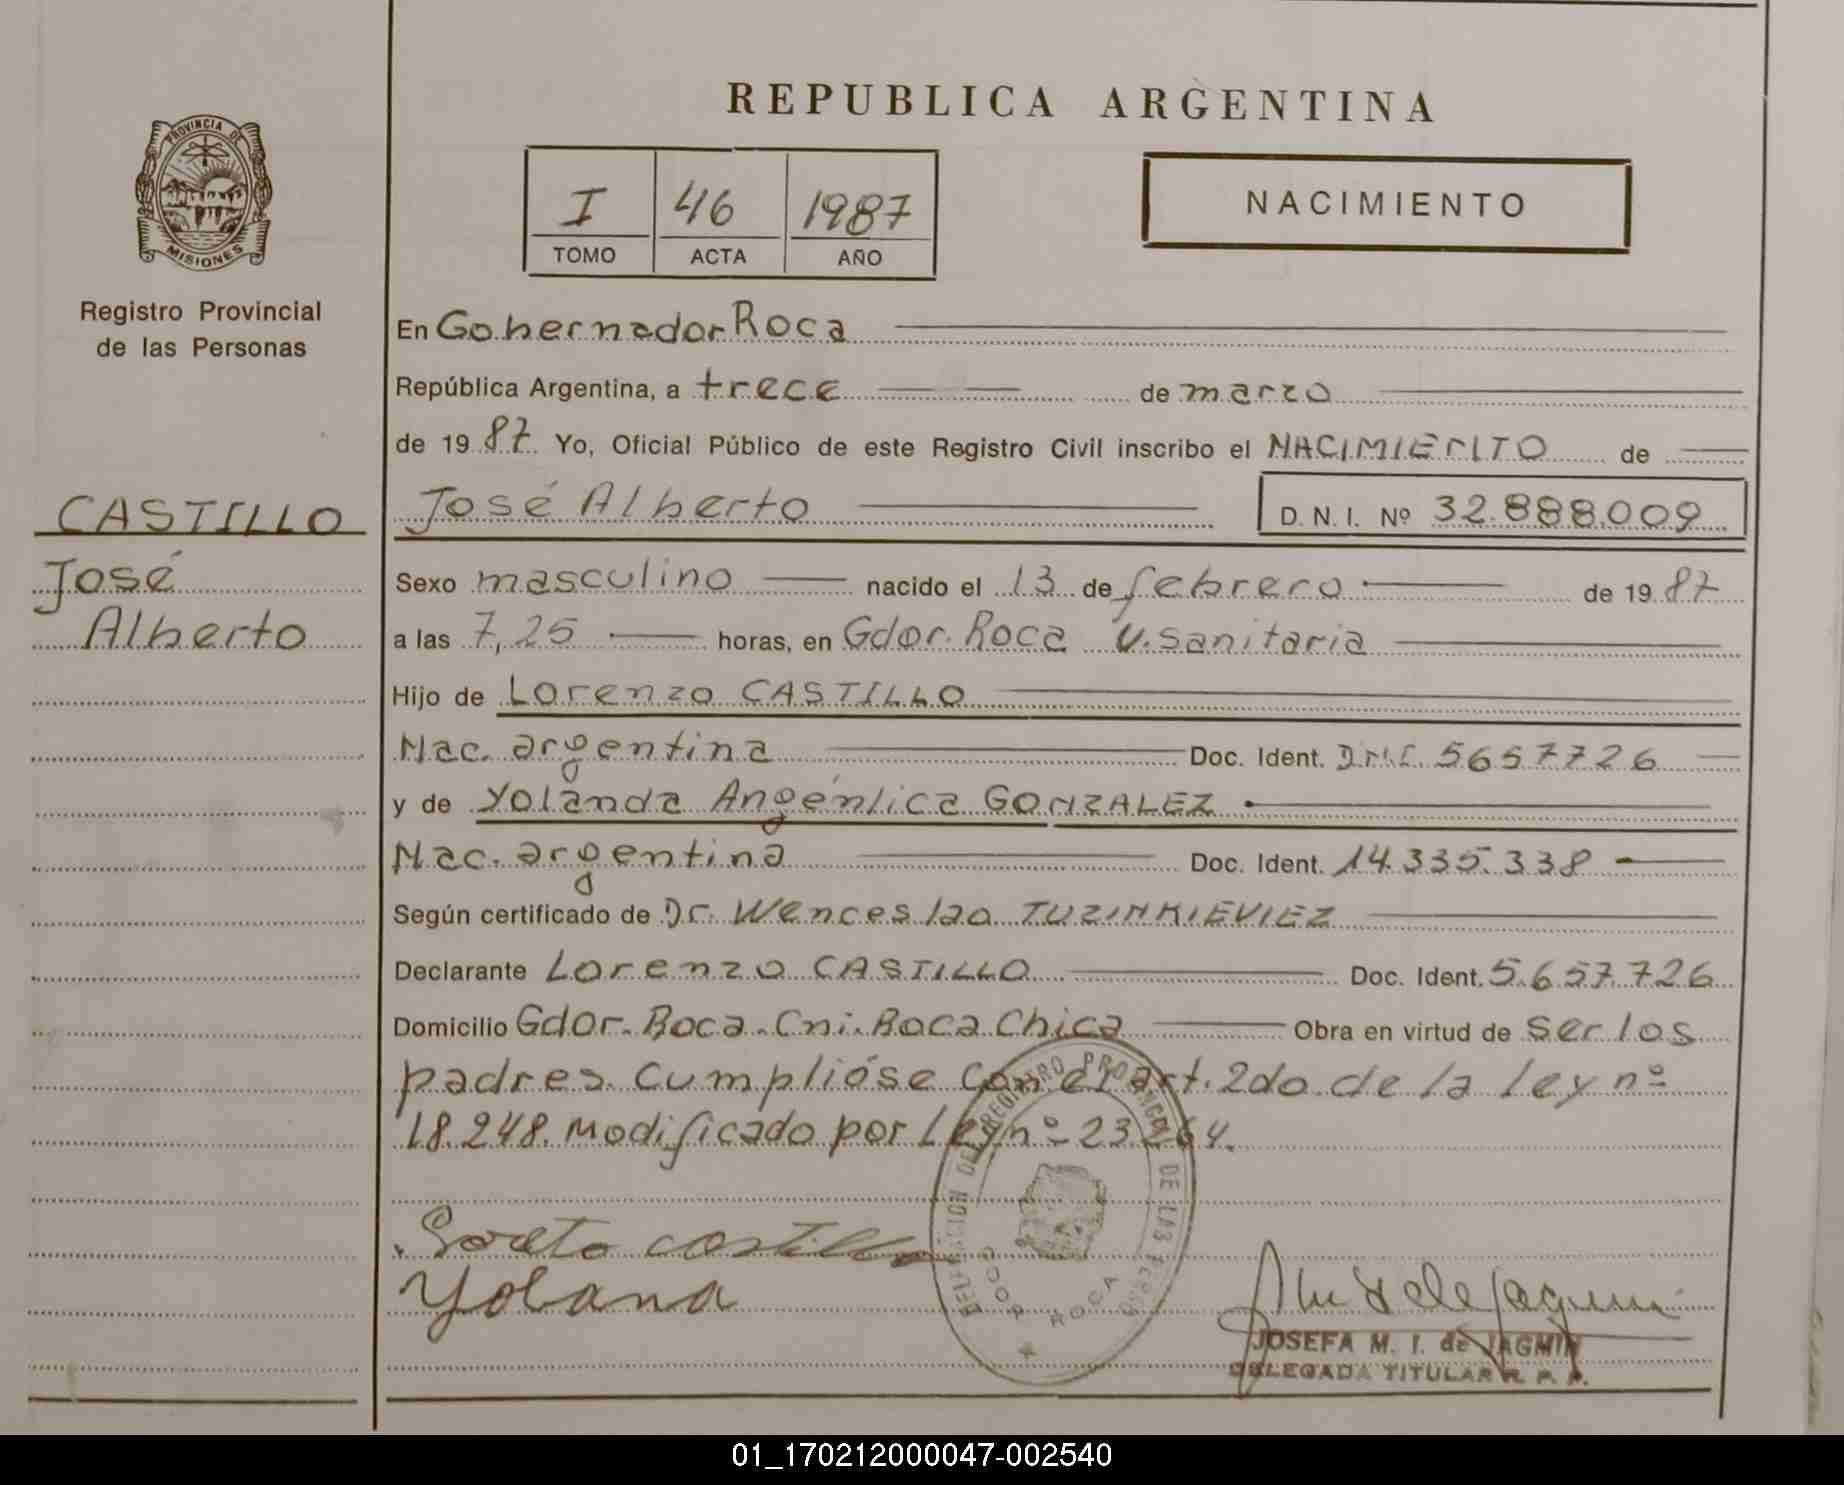 REPUBLICA ARGENTINA
PROVINCIA DE
MISIONES
Registro Provincial
de las Personas
I 46 1987
TOMO ACTA AÑO
NACIMIENTO
En Gobernador Roca
República Argentina, a trece de marzo
de 1987 Yo, Oficial Público de este Registro Civil inscribo el NACIMIENTO de
CASTILLO
José
Alberto
José Alberto D.N.I. Nº 32.888.009
Sexo masculino nacido el 13 de febrero de 1987
a las 7,25 horas, en Gdor. Roca U. Sanitaria
Hijo de Lorenzo CASTILLO
Nac. argentina Doc. Ident. D.N.I. 5657726
y de Yolanda Angénlica GONZALEZ
Nac. argentina Doc. Ident. 14.335.338
Según certificado de Dr. Wenceslao TUZINKIEVIEZ
Declarante Lorenzo CASTILLO Doc. Ident. 5.657.726
Domicilio Gdor. Roca. Cni. Roca Chica Obra en virtud de ser los
padres. Cumplióse con el art. 2do de la Ley nº
18.248. modificado por Ley nº 23264.
castillo
Yolana
ROCA
JOSEFA M. I. de JAGMIN
DELEGADA TITULAR R. P. P.
01_170212000047-002540